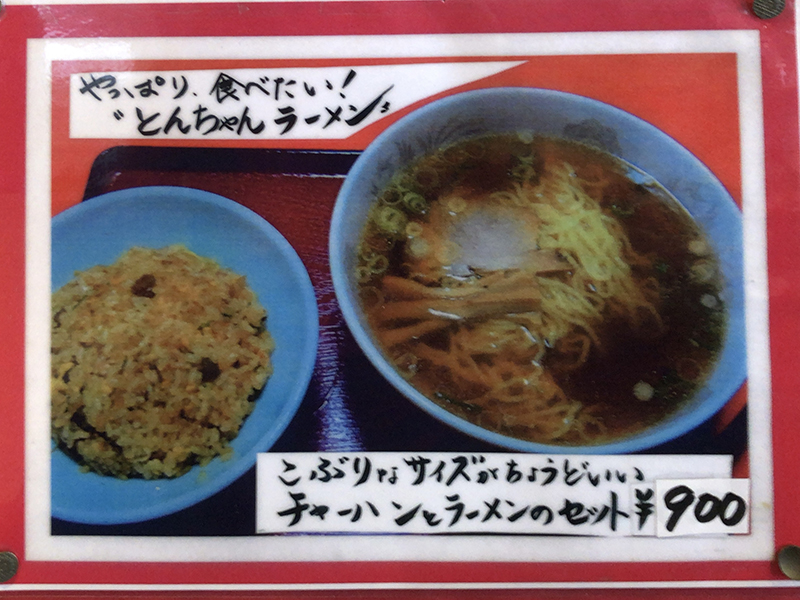 やっぱり、食べたい!
〝とんちゃんラーメン〟
こぶりなサイズがちょうどいい
チャーハンとラーメンのセット¥900